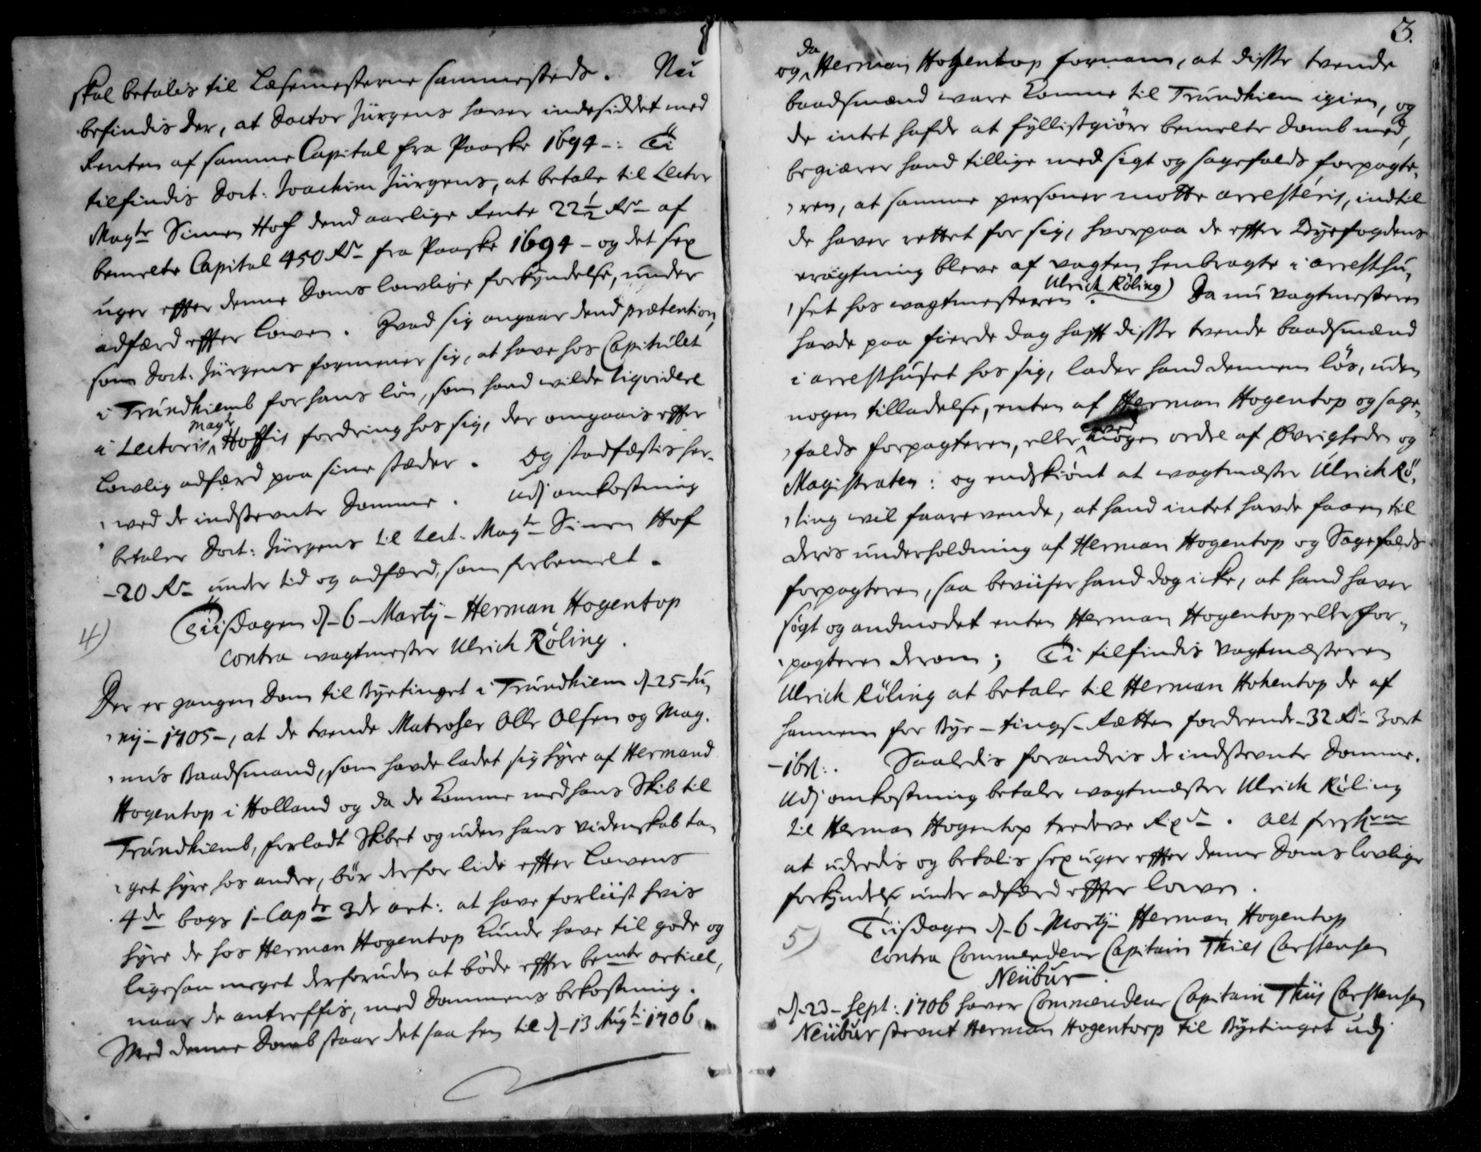 skal betalis til Læsemesterne sammesteds. Nu
befindis der, at Doctor Jürgens haver indesiddet med
Renten af samme Capital fra Paaske 1694 -: Ti
tilfindis Doct: Joachim Jürgens, at betale til Lector
Magtr Simen Hof dend aarlige Rente 22½ Rdr af
bemelte Capital 450 Rdr fra Paaske 1694 - og det sex
uger effter denne Doms lowlige forkyndelse, under
adfærd effter Lowen. Hvad sig angaar dend prætention,
som Doct: Jürgens formener sig, at have hos Capitulet
i Trundhiemb for hans løn, som hand wilde liqvidere
i Lectoris Magtr Hoffis fordring hos sig, der omgaais effter
Lowlig adfærd paa sine stæder. Og stadfæstis her-
wed de indstevnte Domme. Udj omkostning
betaler Doct: Jürgens til Lect. Magtr Simen Hof
- 20 Rdr under tid og adfærd, som forbemelt.
4) Tiisdagen d. 6 Martij - Herman Hogentop
contra wagtmester Ulrich Røling.
Der er gangen Dom til Byetinget i Trundhiem d. 25 Ju,
nij - 1705 -, at de tvende Matroser Olle Olsen og Mag-
nus Baadsmand, som havde ladet sig hyre af Hermand
Hogentop i Holland og da de komme med hans Skib til
Trundhiemb, forladt Skibet og uden hans videnskab ta,
get hyre hos andre, bør derfor lide effter Lowens
4de bogs 1 Captr 3de art: at have forliist hvis
hyre de hos Herman Hogentop kunde have til gode og
ligesaa meget derforuden at bøde effter bemte articel,
naar de antreffis, med Dommens bekostning.
Med denne Domb staar det saa hen til d. 13 Augti 1706
3.
og da Herman Hogentop fornam, at disse tvende
baadsmænd ware komne til Trundhiem igien, og
de intet hafde at fyllistgiøre bemelte Domb med,
begiærer hand tillige med sigt og sagefalds forpagte,
ren, at samme personer motte arresteris, indtil
de haver rettet for sig, hvorpaa de effter Byefogdens
wragtning bleve af wagten henbragte i arresthu,
set hos wagtmesteren Ulrich Røling. Da nu wagtmesteren
havde paa fierde dag hafft disse tvende baadsmænd
i arresthuset hos sig, lader hand dennem løs, uden
nogen tilladelse, enten af Herman Hogentop og sage,
falds forpagteren, eller nogen ordre af Øvrigheden og
Magistraten: og endskiønt at wagtmester Ulrich Rø,
ling wil foarevende, at hand intet havde faaen til
deris underholdning af Herman Hogentop og Sagefalds
forpagteren, saa beviiser hand dog icke, at hand haver
søgt og anmodet enten Herman Hogentop eller for,
pagteren derom; Ti tilfindis wagtmesteren
Ulrich Røling at betale til Herman Hohentop de af
hannem for Bye-tings-Retten fordrende 32 Rdr 3 ort
- 16 sl:. Saaledis forandris de indstevnte Domme.
Udj omkostning betaler wagtmester Ulrich Røling
til Herman Hogentop tredeve Rixdr. Alt forskrevne
at uderedis og betalis sex uger effter denne Doms lovlige
forkyndelse under adfærd effter lowen.
5) Tiisdagen d. 6 Martij Herman Hogentop
contra Commandeur Capitain Thies Carstensen
Neübur
d. 23 Sept: 1706 haver Commandeur Capitain Thiis Carstensen
Neübur stevnt Herman Hogentorp til Byetinget udj